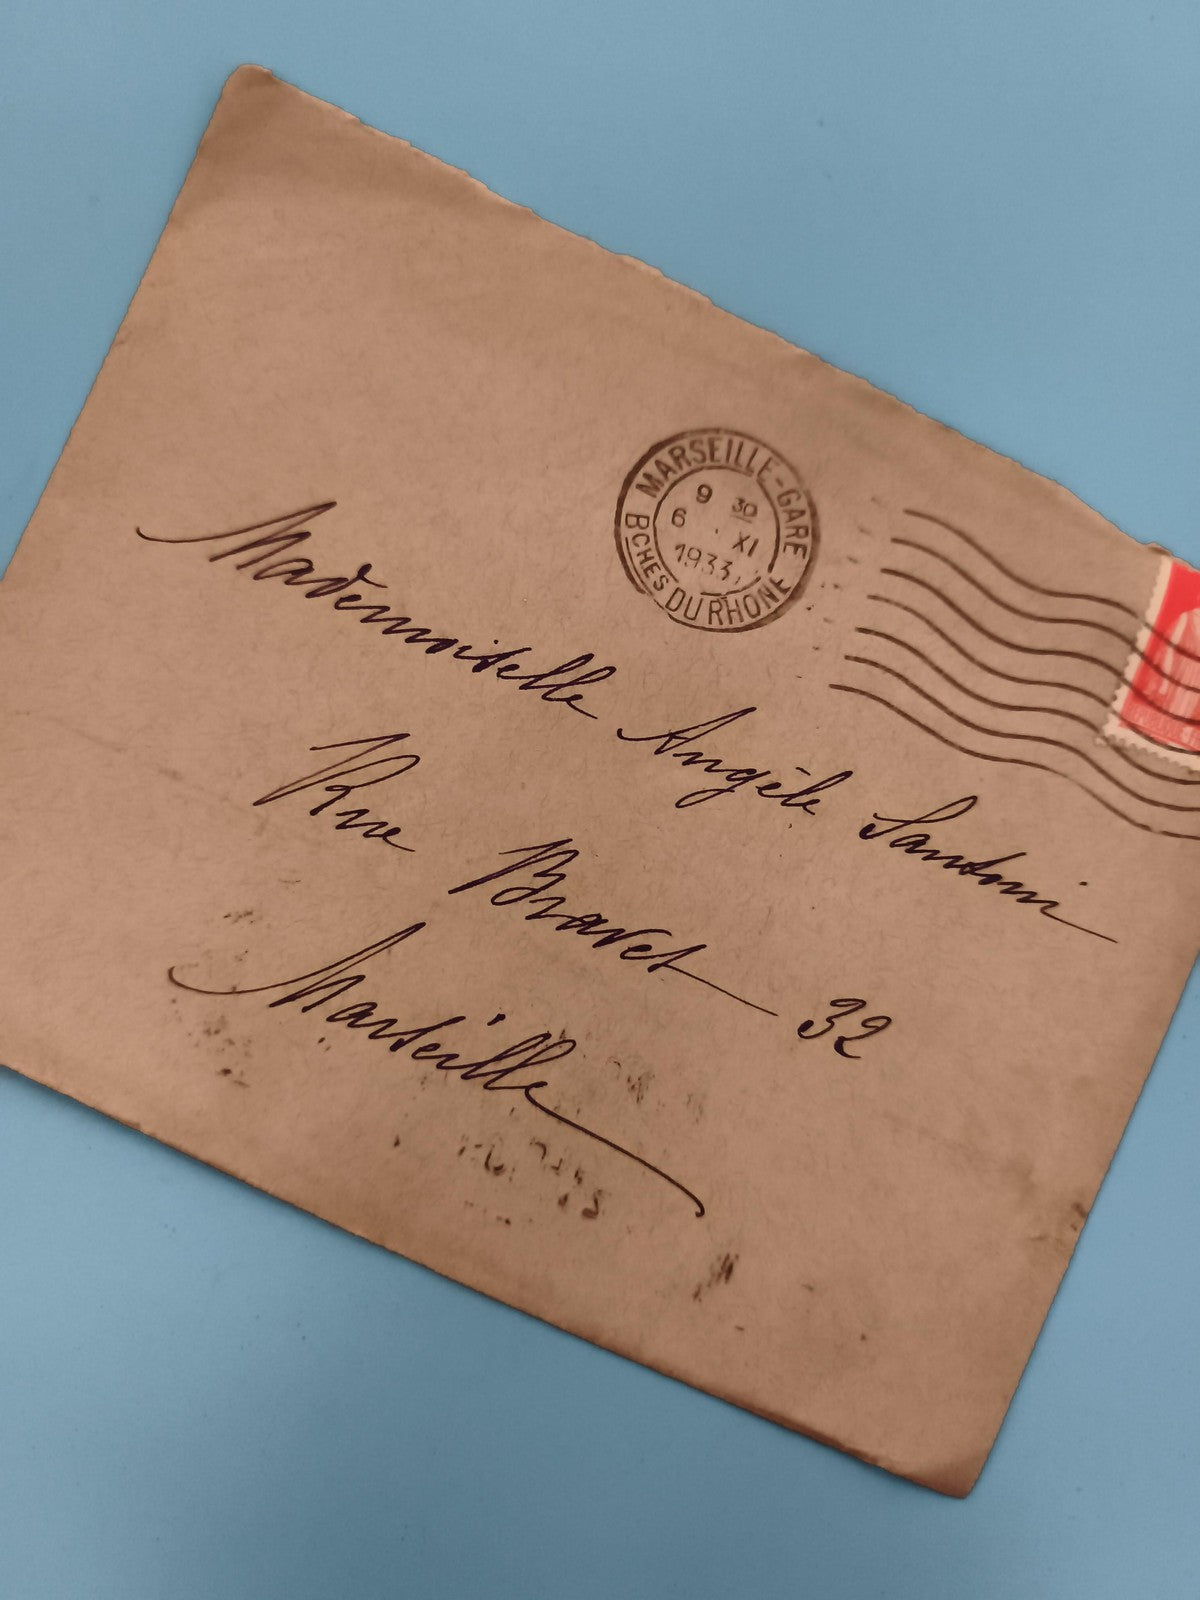 MARSEILLE-GARE
9 30
6 . XI
1933
BCHES DU RHONE
Mademoiselle Angèle Santoni
Rue Bravet 32
Marseille